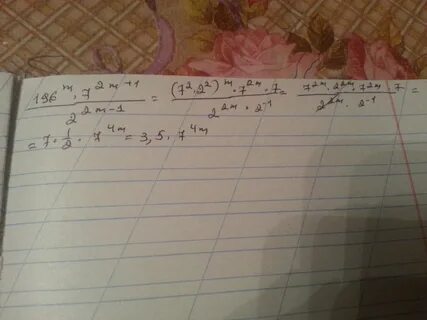 196^m · 7^{2m+1} / 2^{2m-1} = (7^2 · 2^2)^m · 7^{2m} · 7 / 2^{2m} · 2^{-1} = 7^{2m} · 2^{2m} · 7^{2m} · 7 / 2^{2m} · 2^{-1} =
= 7 · 1/2 · 7^{4m} = 3,5 · 7^{4m}